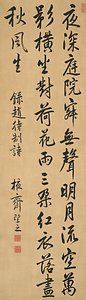 夜深庭院寂無聲明月流空萬
影橫坐對荷花兩三朵紅衣落盡
秋風生 錄趙待制詩